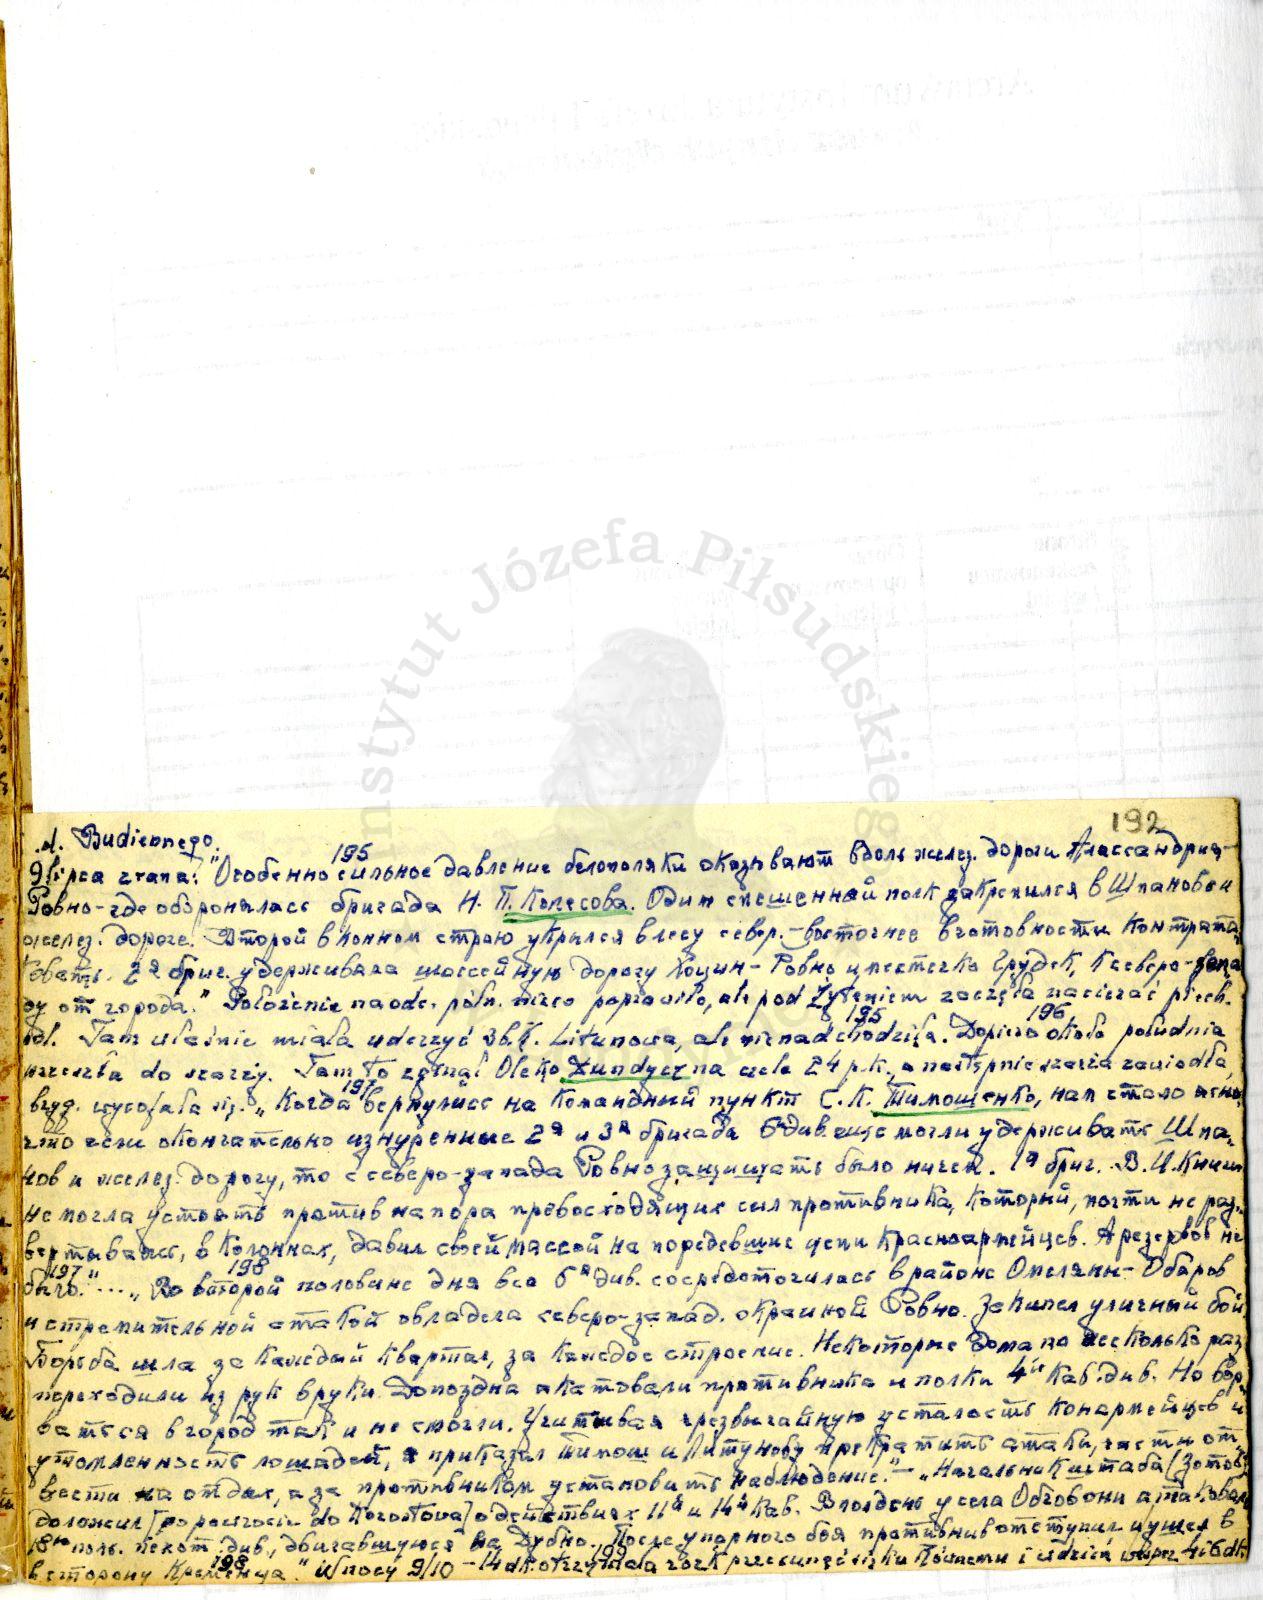 192
d. Budionnego.
9 lipca z rana: 195 "Особенно сильное давление белополяки оказывают вдоль желез. дороги Александрия-
Ровно-где оборонялась бригада Н. П. Колесова. Один спешенный полк закрепился в Шпанове и
желез. дороге. Второй в конном строю укрылся в лесу север.-восточнее в готовности контрата-
ковать. 2я бриг. удерживала шоссейную дорогу Гощин-Ровно и местечко Грудек, к северо-запа
ду от города." Położenie na odc. półn. nieco poprawiło, ale pod Żyteniem zaczęła nacierać piech.
pol. Tam właśnie miała uderzyć 3b.k. Litunowa, ale nie nadchodziła. 195 Dopiero 196 około południa
ruszyła do szarży. Tam to zginął Oleko Dundycz na czele 24 p.k., a następnie szarża zawiodła,
bryg. wycofała się. 197 „Когда вернулись на командный пункт С. К. Тимошенко, нам стало ясно,
что если окончательно изнуренные 2я и 3я бригада 6 див. еще могли удерживать Шпа-
нов и желез. дорогу, то с северо-запада Ровно защищать было нечем. 1я бриг. В. И. Книги
не могла устоять против напора превосходящих сил противника, который, почти не раз-
вертываясь, в колоннах, давил своей массой на поредевшие цепи красноармейцев. А резервов не
было." 197 ... 198 „Во второй половине дня вся 6я див. сосредоточилась в районе Омеляны-Обаров
и стремительной атакой овладела северо-запад. окраиной Ровно. Закипел уличный бой
Борьба шла за каждый квартал, за каждое строение. Некоторые дома по несколько раз
переходили из рук в руки. Допоздна атаковали противника и полки 4й кав. див. Но вор-
ваться в город так и не смогли. Учитывая чрезвычайную усталость конармейцев и
утомленность лошадей, я приказал Тимош и Литунову прекратить атаки, части от-
вести на отдых, а за противником установить наблюдение." - „Начальник штаба (Зотов)
доложил [po powrocie do Kogostowa] о действиях 11й и 14й кав. В полдень у села Обговони атаковали
18ю поль. пехот. див., двигавшуюся на Дубно. После упорного боя противник отступил и ушел в
в сторону Кременца." 198 W nocy 9/10 - 14 dk. otrzymała 199 rozk. przesunąć się ku Równemu i 4 i 6 dk.